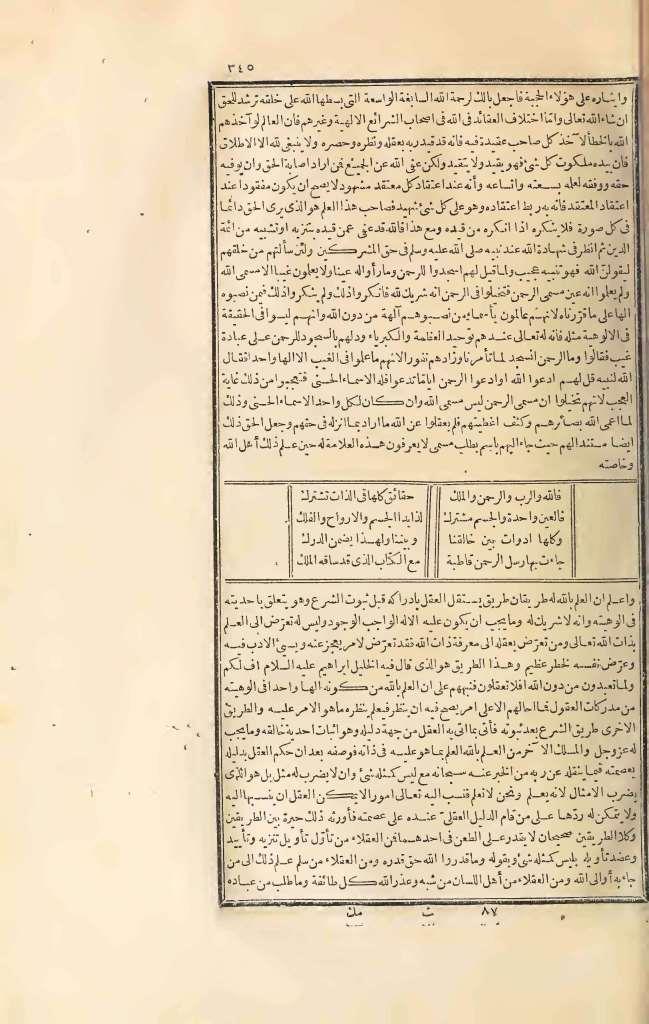 ٣٤٥
وايثاره على هؤلاء الحجبة فاجعل بالك لرحمة الله السابغة الواسعة التي بسطها الله على خلقه ترشد للحق
ان شاء الله تعالى وانما اختلاف العقائد في الله في اصحاب الشرائع الالهية وغيرهم فان العالم لو آخذهم
الله بالخطأ لآخذ كل صاحب عقيدة فيه فانه قد قيد ربه بعقله ونظره وحصره ولا ينبغي لله الا الاطلاق
فان بيده ملكوت كل شئ فهو يقيد ولا يتقيد ولكن عفى الله عن الجميع فمن اراد اصابة الحق وان يوفيه
حقه ووفقه لعلمه بسعته واتساعه وأنه عند اعتقاد كل معتقد مشهود لا يصح ان يكون مفقودا عند
اعتقاد المعتقد فانه به ربط اعتقاده وهو على كل شئ شهيد فصاحب هذا العلم هو الذي يرى الحق دائما
في كل صورة فلا ينكره اذا انكره من قيده ومع هذا فالله قد عفى عمن قيده بتنزيه او تشبيه من ائمة
الدين ثم انظر في شهادة الله عند نبيه صلى الله عليه وسلم في حق المشركين ولئن سألتهم من خلقهم
ليقولنّ الله فهو تنبيه عجيب ولما قيل لهم اسجدوا للرحمن وما رأوا له عينا ولا يعلمون غيبا الا مسمى الله
ولم يعلموا انه عين مسمى الرحمن فتخيلوا في الرحمن انه شريك لله فانكروا ذلك ولم ينكروا ذلك فيمن نصبوه
الها على ما قررناه لانهم عالمون بأسماء من نصبوهم آلهة من دون الله وانهم ليسوا في الحقيقة
في الالوهية مثله فانه له تعالى عندهم توحيد العظمة والكبرياء ودلهم بالسجود للرحمن على عبادة
غيب فقالوا وما الرحمن انسجد لما تأمرنا وزادهم نفورا لانهم ما علموا في الغيب الا الها واحدا فقال
الله لنبيه قل لهم ادعوا الله او ادعوا الرحمن ايا ما تدعوا فله الاسماء الحسنى فتعجبوا من ذلك غاية
العجب لانهم تخيلوا ان مسمى الرحمن ليس مسمى الله وان كان لكل واحد الاسماء الحسنى وذلك
لما اعمى الله بصائرهم وكثف اغطيتهم فلم يعقلوا عن الله ما اراد بما انزله في حقهم وجعل الحق ذلك
ايضا مستندا لهم حيث جاء اليهم باسم يطلب مسمى لا يعرفون هذه العلامة له حين علم ذلك أهل الله
وخاصته
فالله والرب والرحمن والملك حقائق كلها في الذات تشترك
فالعين واحدة والحسم مشترك لذا بدا الجسم والارواح والفلك
وكلها ادوات بين خالقنا وبيننا ولهذا يضمن الدرك
جاءت بها رسل الرحمن قاطبة مع الكتاب الذي قد ساقه الملك
واعلم ان العلم بالله له طريقان طريق يستقل العقل بادراكه قبل ثبوت الشرع وهو يتعلق باحديته
في الوهيته وانه لا شريك له وما يجب ان يكون عليه الاله الواجب الوجود وليس له تعرّض الى العلم
بذات الله تعالى ومن تعرّض بعقله الى معرفة ذات الله فقد تعرّض لامر يعجز عنه ويسيئ الادب فيه
وعرّض نفسه لخطر عظيم وهذا الطريق هو الذي قال فيه الخليل ابراهيم عليه السلام اف لكم
ولما تعبدون من دون الله افلا تعقلون فنبههم على ان العلم بالله من كونه الها واحدا في الوهيته
من مدركات العقول فما احالهم الا على امر يصح فيه ان ينظر فيعلم بنظره ما هو الامر عليه والطريق
الاخرى طريق الشرع بعد ثبوته فأتى بما اتى به العقل من جهة دليله وهو اثبات احدية خالقه وما يجب
له عز وجل والمسلك الآخر من العلم بالله العلم بما هو عليه في ذاته فوصفه بعد ان حكم العقل بدليله
بعصمته فيما ينقله عن ربه من الخبر عنه سبحانه مع ليس كمثله شئ وان لا يضرب له مثل بل هو الذي
يضرب الامثال لانه يعلم ونحن لا نعلم فنسب اليه تعالى امورا لا يتمكن العقل ان ينسبها اليه
ولا يتمكن له ردّها على من قام الدليل العقليّ عنده على عصمته فأورثه ذلك حيرة بين الطريقين
وكلا الطريقين صحيحان لا يقدر على الطعن في احدهما فمن العقلاء من تأوّل تأويل تنزيه وتأييد
وعضد تأويله بليس كمثله شئ وبقوله وما قدروا الله حق قدره ومن العقلاء من سلم علم ذلك الى من
جاء به أو الى الله ومن العقلاء من أهل اللسان من شبه وعذر الله كل طائفة وما طلب من عباده
٨٧ ث مك